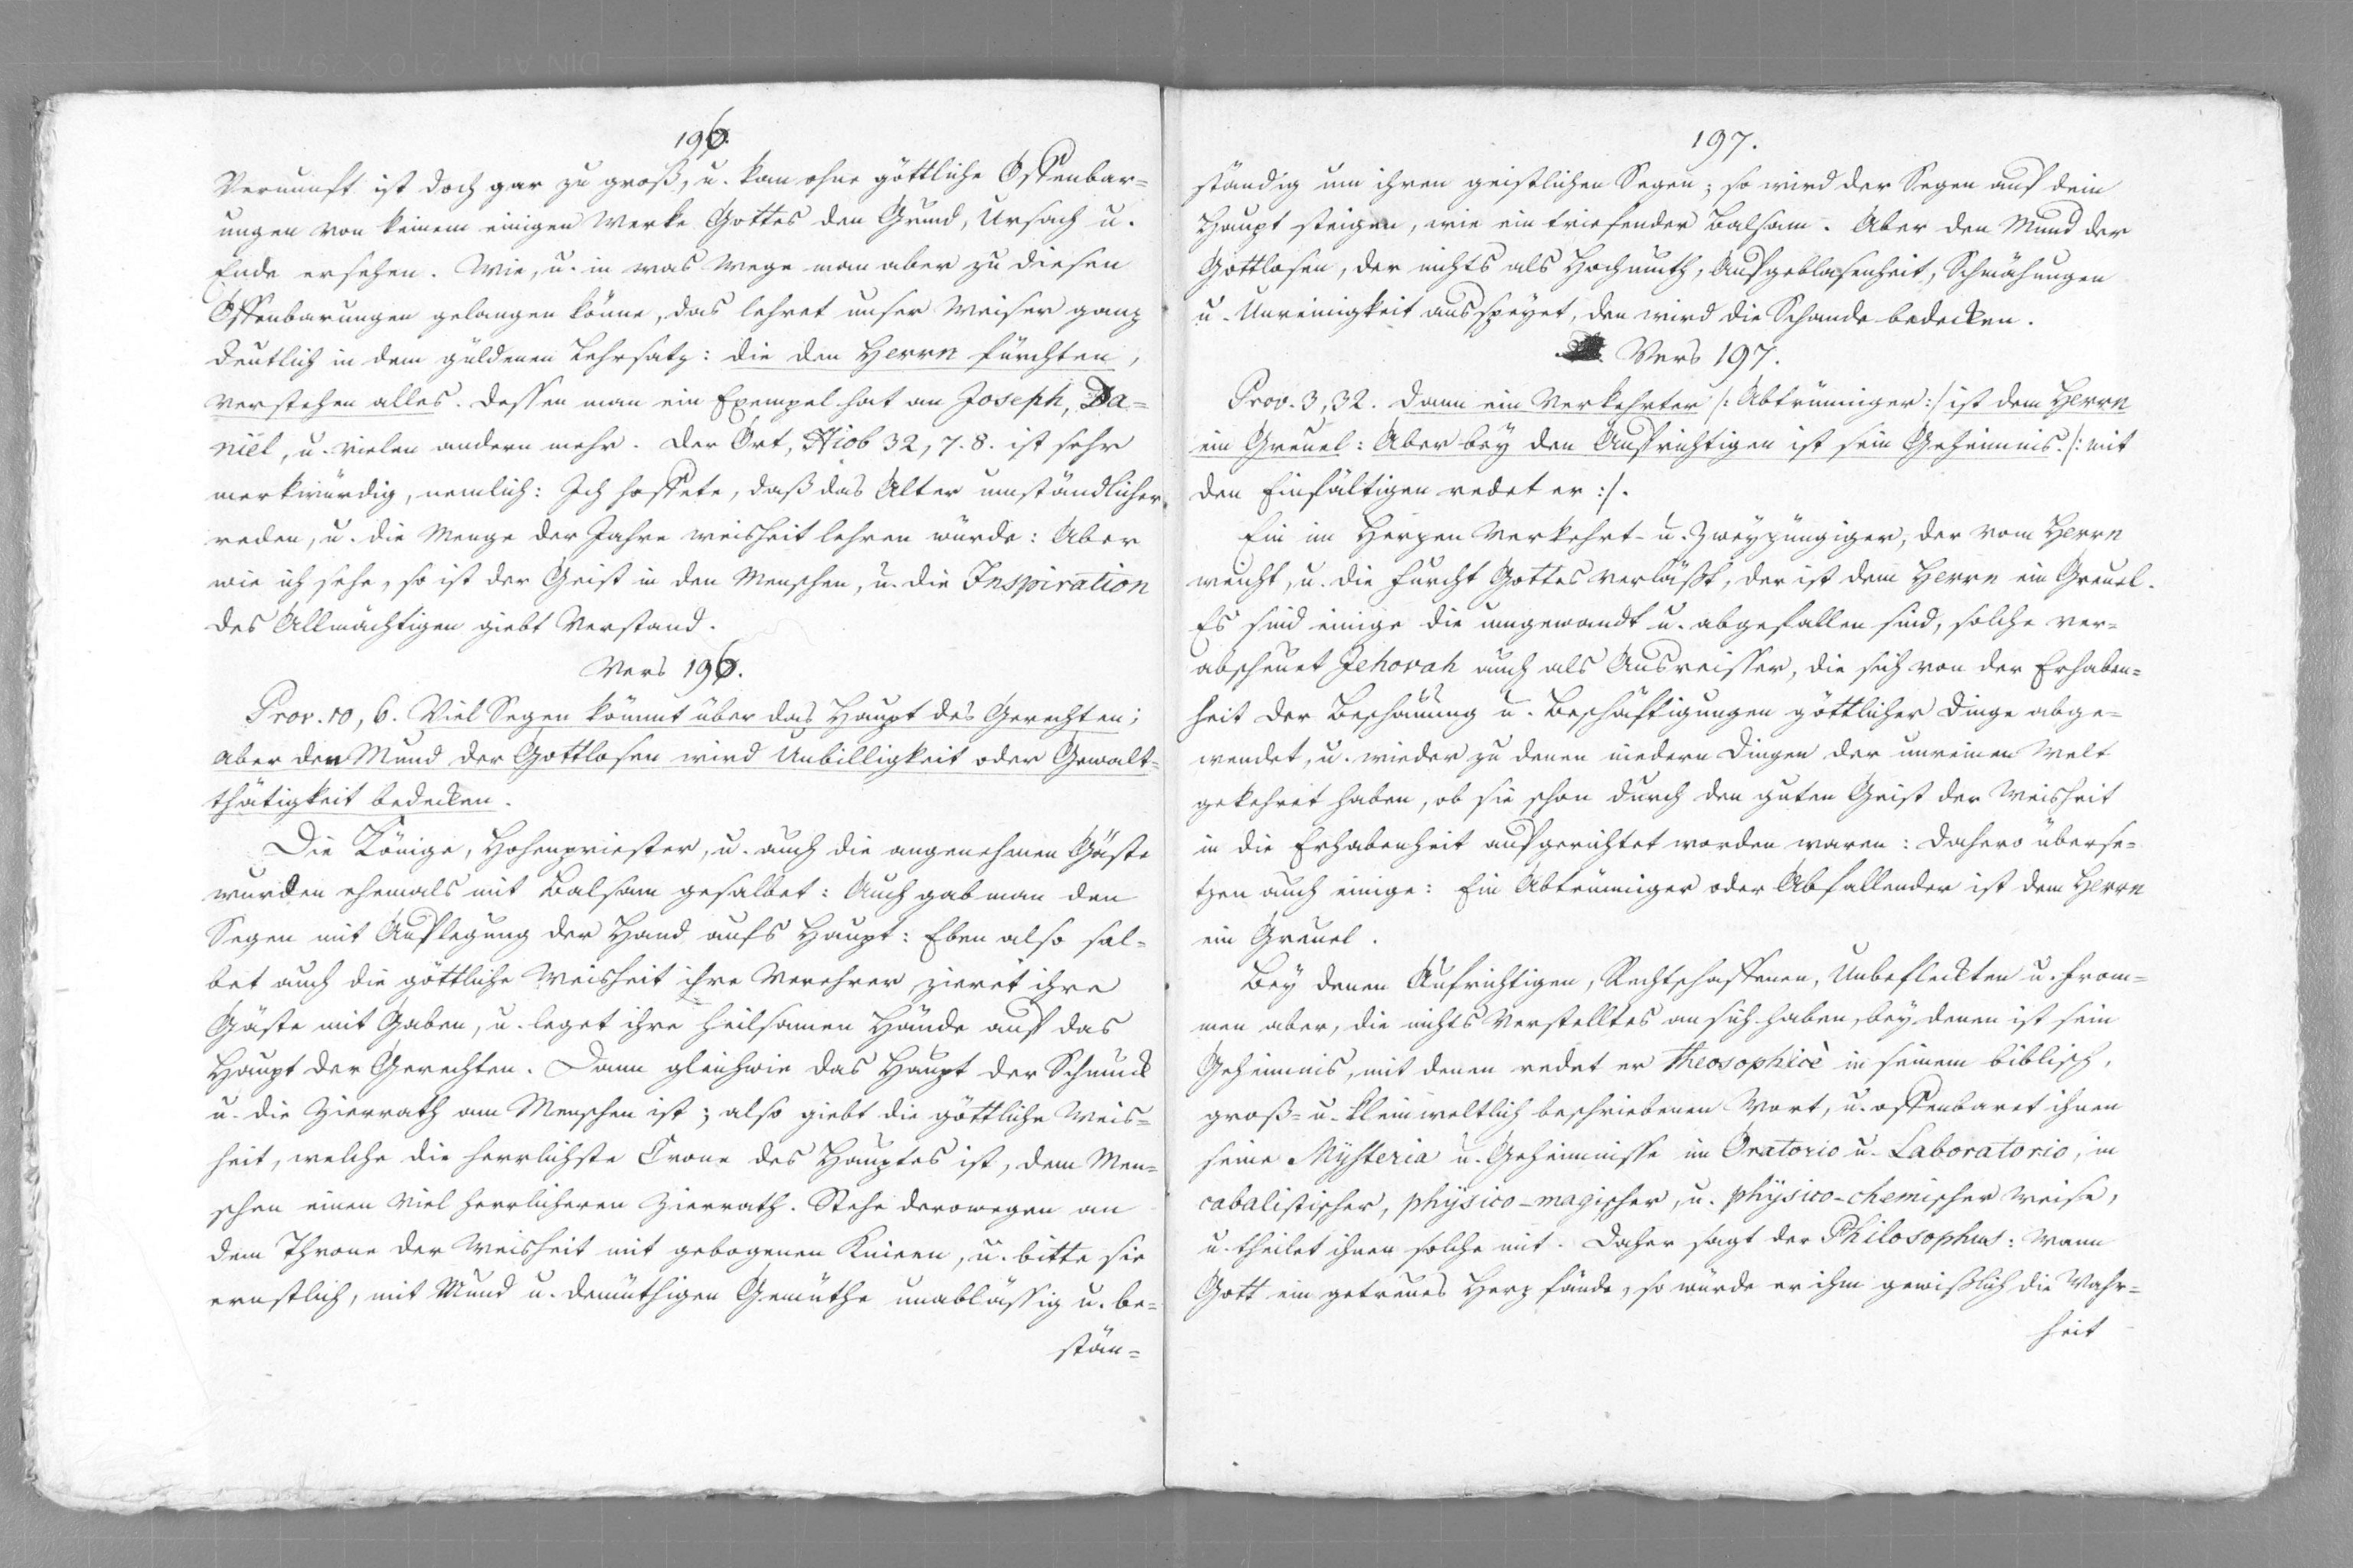 196.
Vernunft ist doch gar zu groß, u. kan ohne göttliche Offenbar=
ungen von keinem einigen Werke Gottes den Grund, Ursach u.
Ende ersehen. Wie, u. in was Wege man aber zu diesen
Offenbarungen gelangen könne, das lehret unser Weiser ganz
deutlich in dem güldenen Lehrsatz: die den Herrn fürchten,
verstehen alles. Dessen man ein Exempel hat an Joseph, Da=
niel, u. vielen andern mehr. Der Ort, Hiob 32, 7. 8. ist sehr
merkwürdig, nemlich: Ich hoffete, daß das Alter umständlicher
reden, u. die Menge der Jahre Weisheit lehren würde: Aber
wie ich sehe, so ist der Geist in den Menschen, u. die Inspiration
des Allmächtigen giebt Verstand.
Vers 196.
Prov. 10, 6. Viel Segen kömmt über das Haupt des Gerechten;
aber den Mund der Gottlosen wird Unbilligkeit oder Gewalt=
thätigkeit bedecken.
Die Könige, Hohenpriester, u. auch die angenehmen Gäste
wurden ehemals mit Balsam gesalbet: Auch gab man den
Segen mit Auflegung der Hand aufs Haupt: Eben also sal=
bet auch die göttliche Weisheit ihre Verehrer, zieret ihre
Gäste mit Gaben, u. leget ihre heilsamen Hände auf das
Haupt der Gerechten. Dann gleichwie das Haupt der Schmuck
u. die Zierrath am Menschen ist; also giebt die göttliche Weis=
heit, welche die herrlichste Crone des Hauptes ist, dem Men=
schen einen viel herrlicheren Zierrath. Stehe derowegen an
dem Throne der Weisheit mit gebogenen Knieen, u. bitte sie
ernstlich, mit Mund u. demüthigen Gemüthe unabläßig u. be=
stän=
197.
ständig um ihren geistlichen Segen; so wird der Segen auf dein
Haupt steigen, wie ein triefender Balsam. Aber den Mund der
Gottlosen, der nichts als Hochmuth, Aufgeblasenheit, Schmähungen
u. Unreinigkeit ausspeyet, den wird die Schande bedecken.
Vers 197.
Prov. 3, 32. Dann ein Verkehrter /: Abtrünniger :/ ist dem Herrn
ein Greuel: Aber bey den Aufrichtigen ist sein Geheimnis. /: mit
den Einfältigen redet er :/.
Ein im Herzen Verkehrt- u. Zweyzüngiger, der vom Herrn
weicht, u. die Furcht Gottes verläßt, der ist dem Herrn ein Greuel.
Es sind einige die umgewandt u. abgefallen sind, solche ver=
abscheuet Jehovah auch als Ausreisser, die sich von der Erhaben=
heit der Beschauung u. Beschäftigungen göttlicher Dinge abge=
wendet, u. wieder zu denen niedern Dingen der unreinen Welt
gekehret haben, ob sie schon durch den guten Geist der Weisheit
in die Erhabenheit aufgerichtet worden waren: Dahero überse=
tzen auch einige: Ein Abtrünniger oder Abfallender ist dem Herrn
ein Greuel.
Bey denen Aufrichtigen, Rechtschaffenen, Unbefleckten u. From=
men aber, die nichts Verstelltes an sich haben, bey denen ist sein
Geheimnis, mit denen redet er theosophicè in seinem biblisch,
groß= u. klein weltlich beschriebenen Wort, u. offenbaret ihnen
seine Mysteria u. Geheimnisse im Oratorio u. Laboratorio, in
cabalistischer, physico-magischer, u. physico-chemischer Weise,
u. theilet ihnen solche mit. Daher sagt der Philosophus: Wann
Gott ein getreues Herz fände, so würde er ihm gewißlich die Wahr=
heit